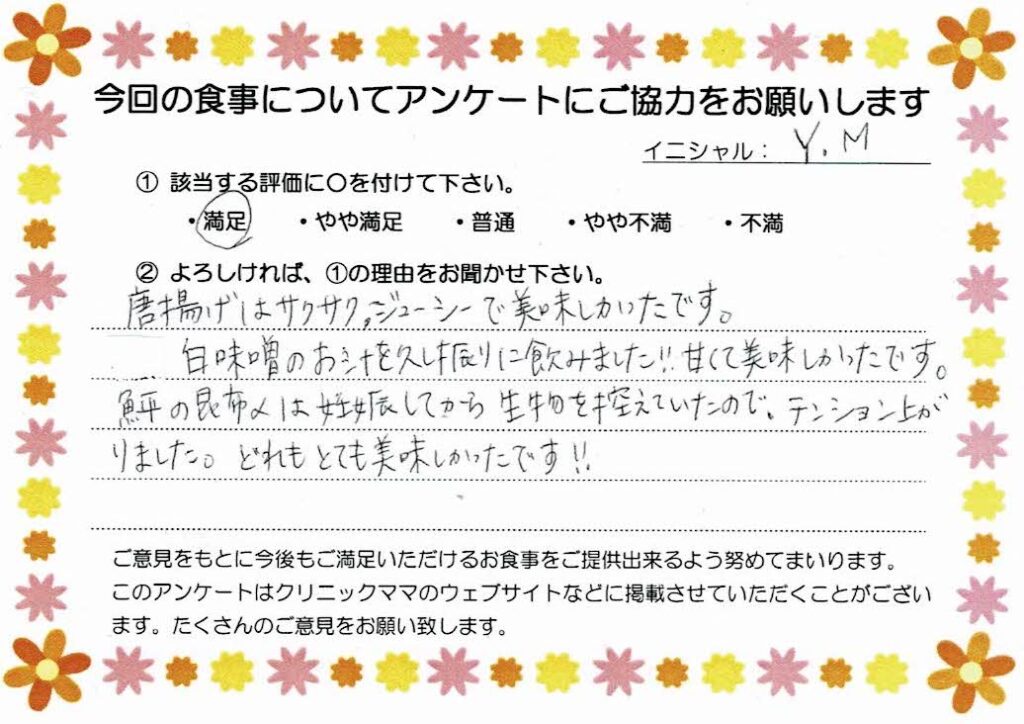 今回の食事についてアンケートにご協力をお願いします
イニシャル： Y.M
① 該当する評価に〇を付けて下さい。
・満足 ・やや満足 ・普通 ・やや不満 ・不満
② よろしければ、①の理由をお聞かせ下さい。
唐揚げはサクサク、ジューシーで美味しかったです。
白味噌のお汁を久し振りに飲みました!!甘くて美味しかったです。
鮃の昆布〆は妊娠してから生物を控えていたので、テンション上が
りました。どれもとても美味しかったです!!
ご意見をもとに今後もご満足いただけるお食事をご提供出来るよう努めてまいります。
このアンケートはクリニックママのウェブサイトなどに掲載させていただくことがござい
ます。たくさんのご意見をお願い致します。